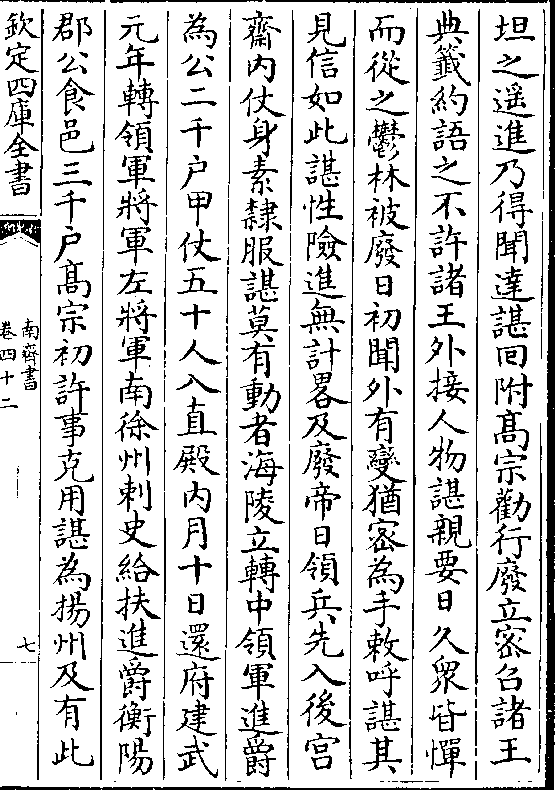 坦之遥進乃得聞達諶回附髙宗勸行廢立密召諸王
典籖約語之不許諸王外接人物諶親要日久衆皆憚
而從之鬱林被廢日初聞外有變猶密為手敕呼諶其
見信如此諶性險進無計畧及廢帝日領兵先入後宫
齋内仗身素隸服諶莫有動者海陵立轉中領軍進爵
為公二千户甲仗五十人入直殿内月十日還府建武
元年轉領軍將軍左將軍南徐州刺史給扶進爵衡陽
郡公食邑三千户髙宗初許事克用諶為揚州及有此
欽定四庫全書
南齊書
卷四十二
七